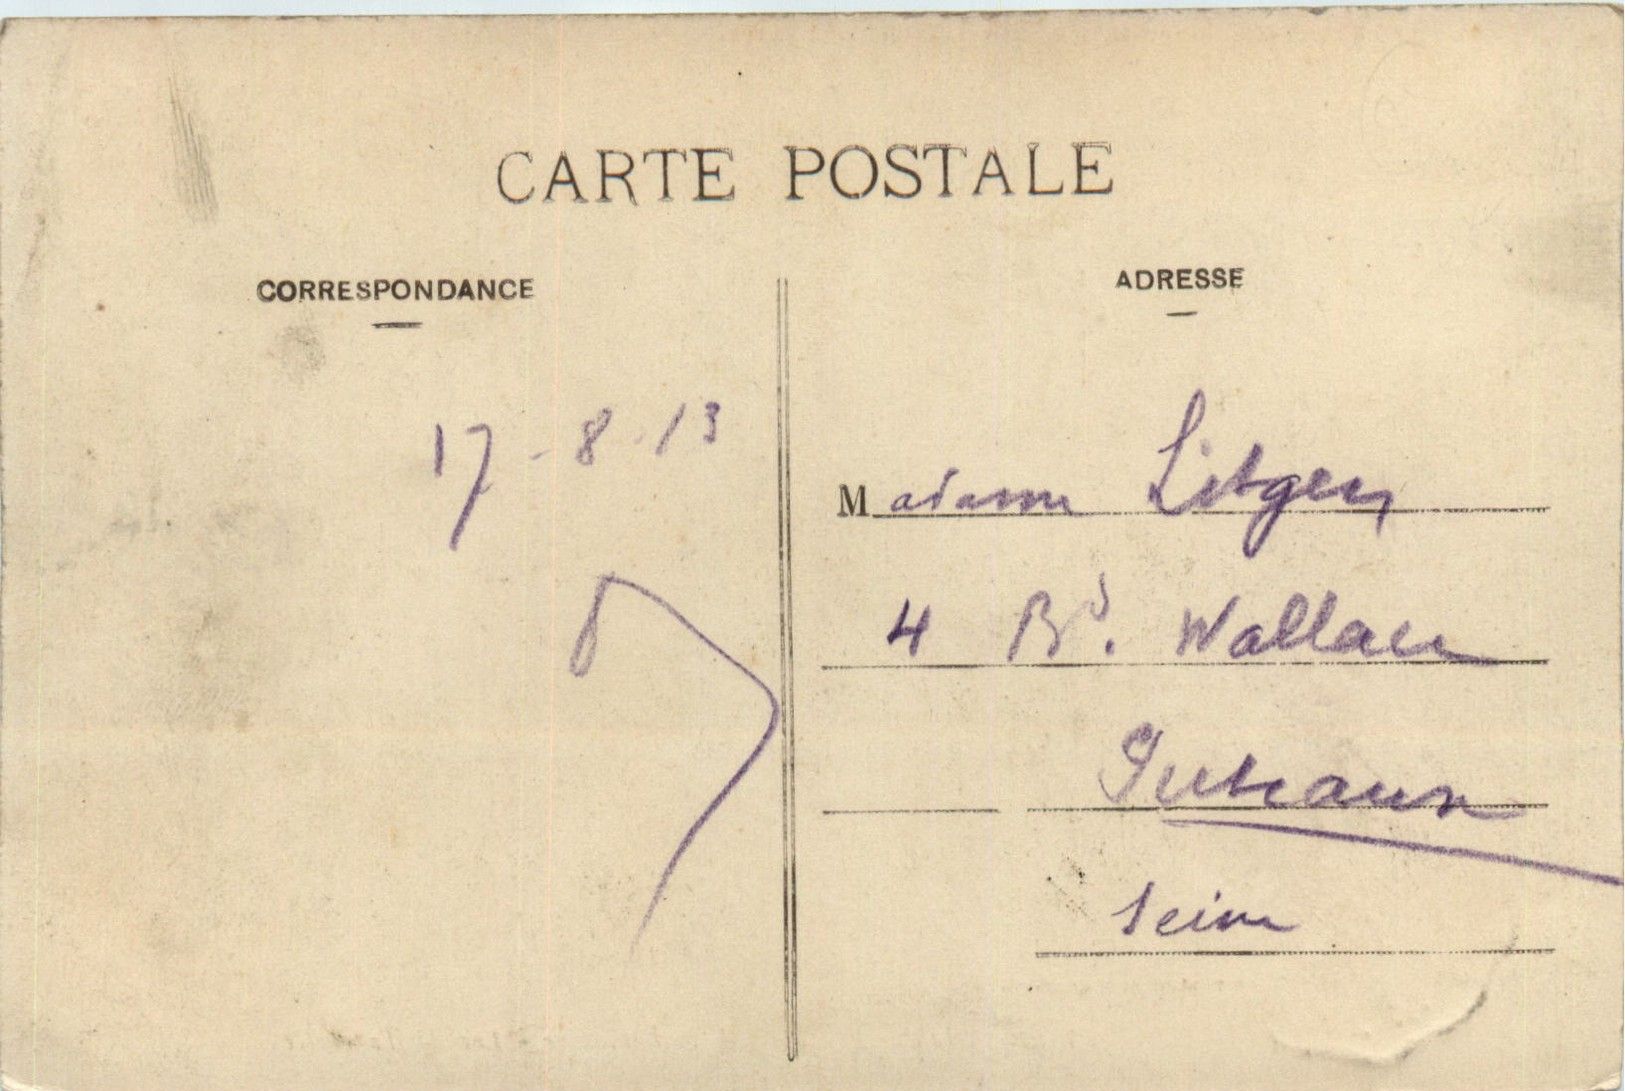 CARTE POSTALE
CORRESPONDANCE
17-8-13
ADRESSE
Madame Litgen
4 Bd. Wallace
Puteaux
Seine